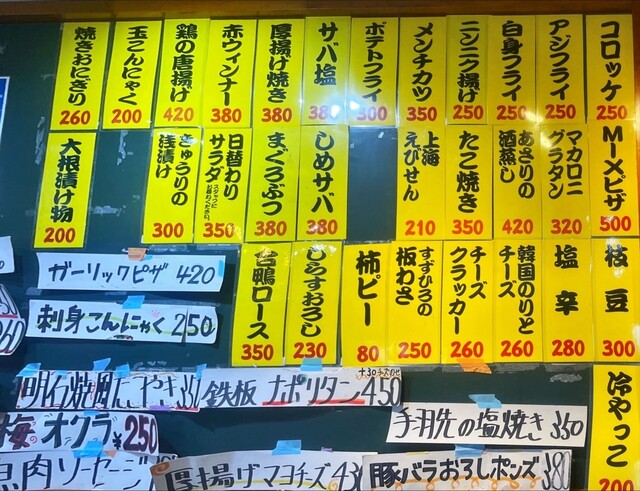 コロッケ 250
アジフライ 250
白身フライ 250
ニンニク揚げ 250
メンチカツ 350
ポテトフライ 300
サバ塩 380
厚揚げ焼き 380
赤ウィンナー 380
鶏の唐揚げ 420
玉こんにゃく 200
焼きおにぎり 260
MーMピザ 500
マカロニグラタン 320
あさりの酒蒸し 420
たこ焼き 350
上海えびせん 210
しめサバ 380
まぐろぶつ 380
日替わりサラダ 350
きゅうりの浅漬け 300
大根漬け物 200
枝豆 300
塩辛 280
韓国のりとチーズ 260
チーズクラッカー 260
すずひろの板わさ 250
柿ピー 80
しらすおろし 230
合鴨ロース 350
冷やっこ 200
ガーリックピザ 420
刺身こんにゃく 250
明石焼風たこやき
鉄板 ナポリタン 450
手羽先の塩焼き 350
梅オクラ ¥250
肉ソーセージ
厚揚げマヨチーズ 43
豚バラおろしポンズ 380